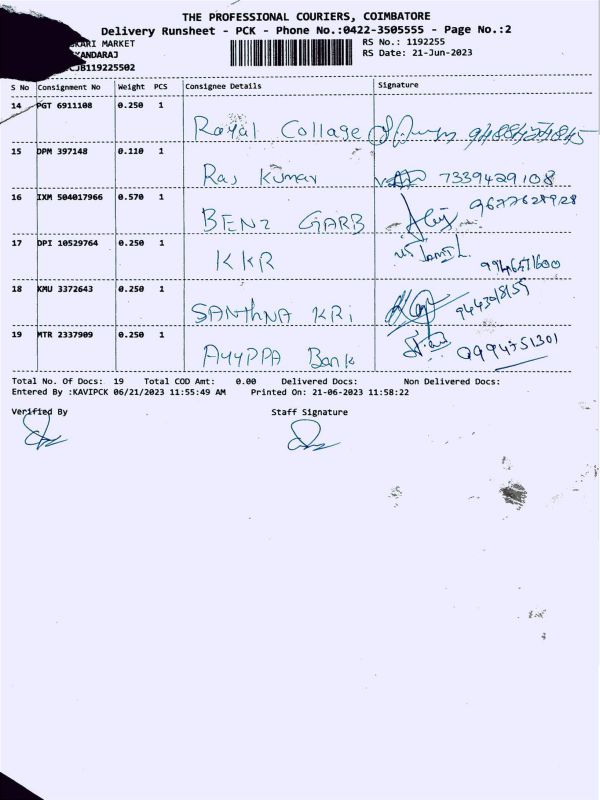 THE PROFESSIONAL COURIERS, COIMBATORE
Delivery Runsheet - PCK - Phone No.:0422-3505555 - Page No.:2
KARI MARKET
KANDARAJ
CJB119225502
RS No.: 1192255
RS Date: 21-Jun-2023
S No Consignment No Weight PCS Consignee Details Signature
14 PGT 6911108 0.250 1 Royal Collage
15 DPM 397148 0.110 1 Raj Kumar 7339429108
16 IXM 504017966 0.570 1 BENZ GARB 9677628928
17 DPI 10529764 0.250 1 KKR
18 KMU 3372643 0.250 1 SANTHNA KRI
19 MTR 2337909 0.250 1 AYYPPA Bank 9994751301
Total No. Of Docs: 19 Total COD Amt: 0.00 Delivered Docs: Non Delivered Docs:
Entered By :KAVIPCK 06/21/2023 11:55:49 AM Printed On: 21-06-2023 11:58:22
Verified By Staff Signature